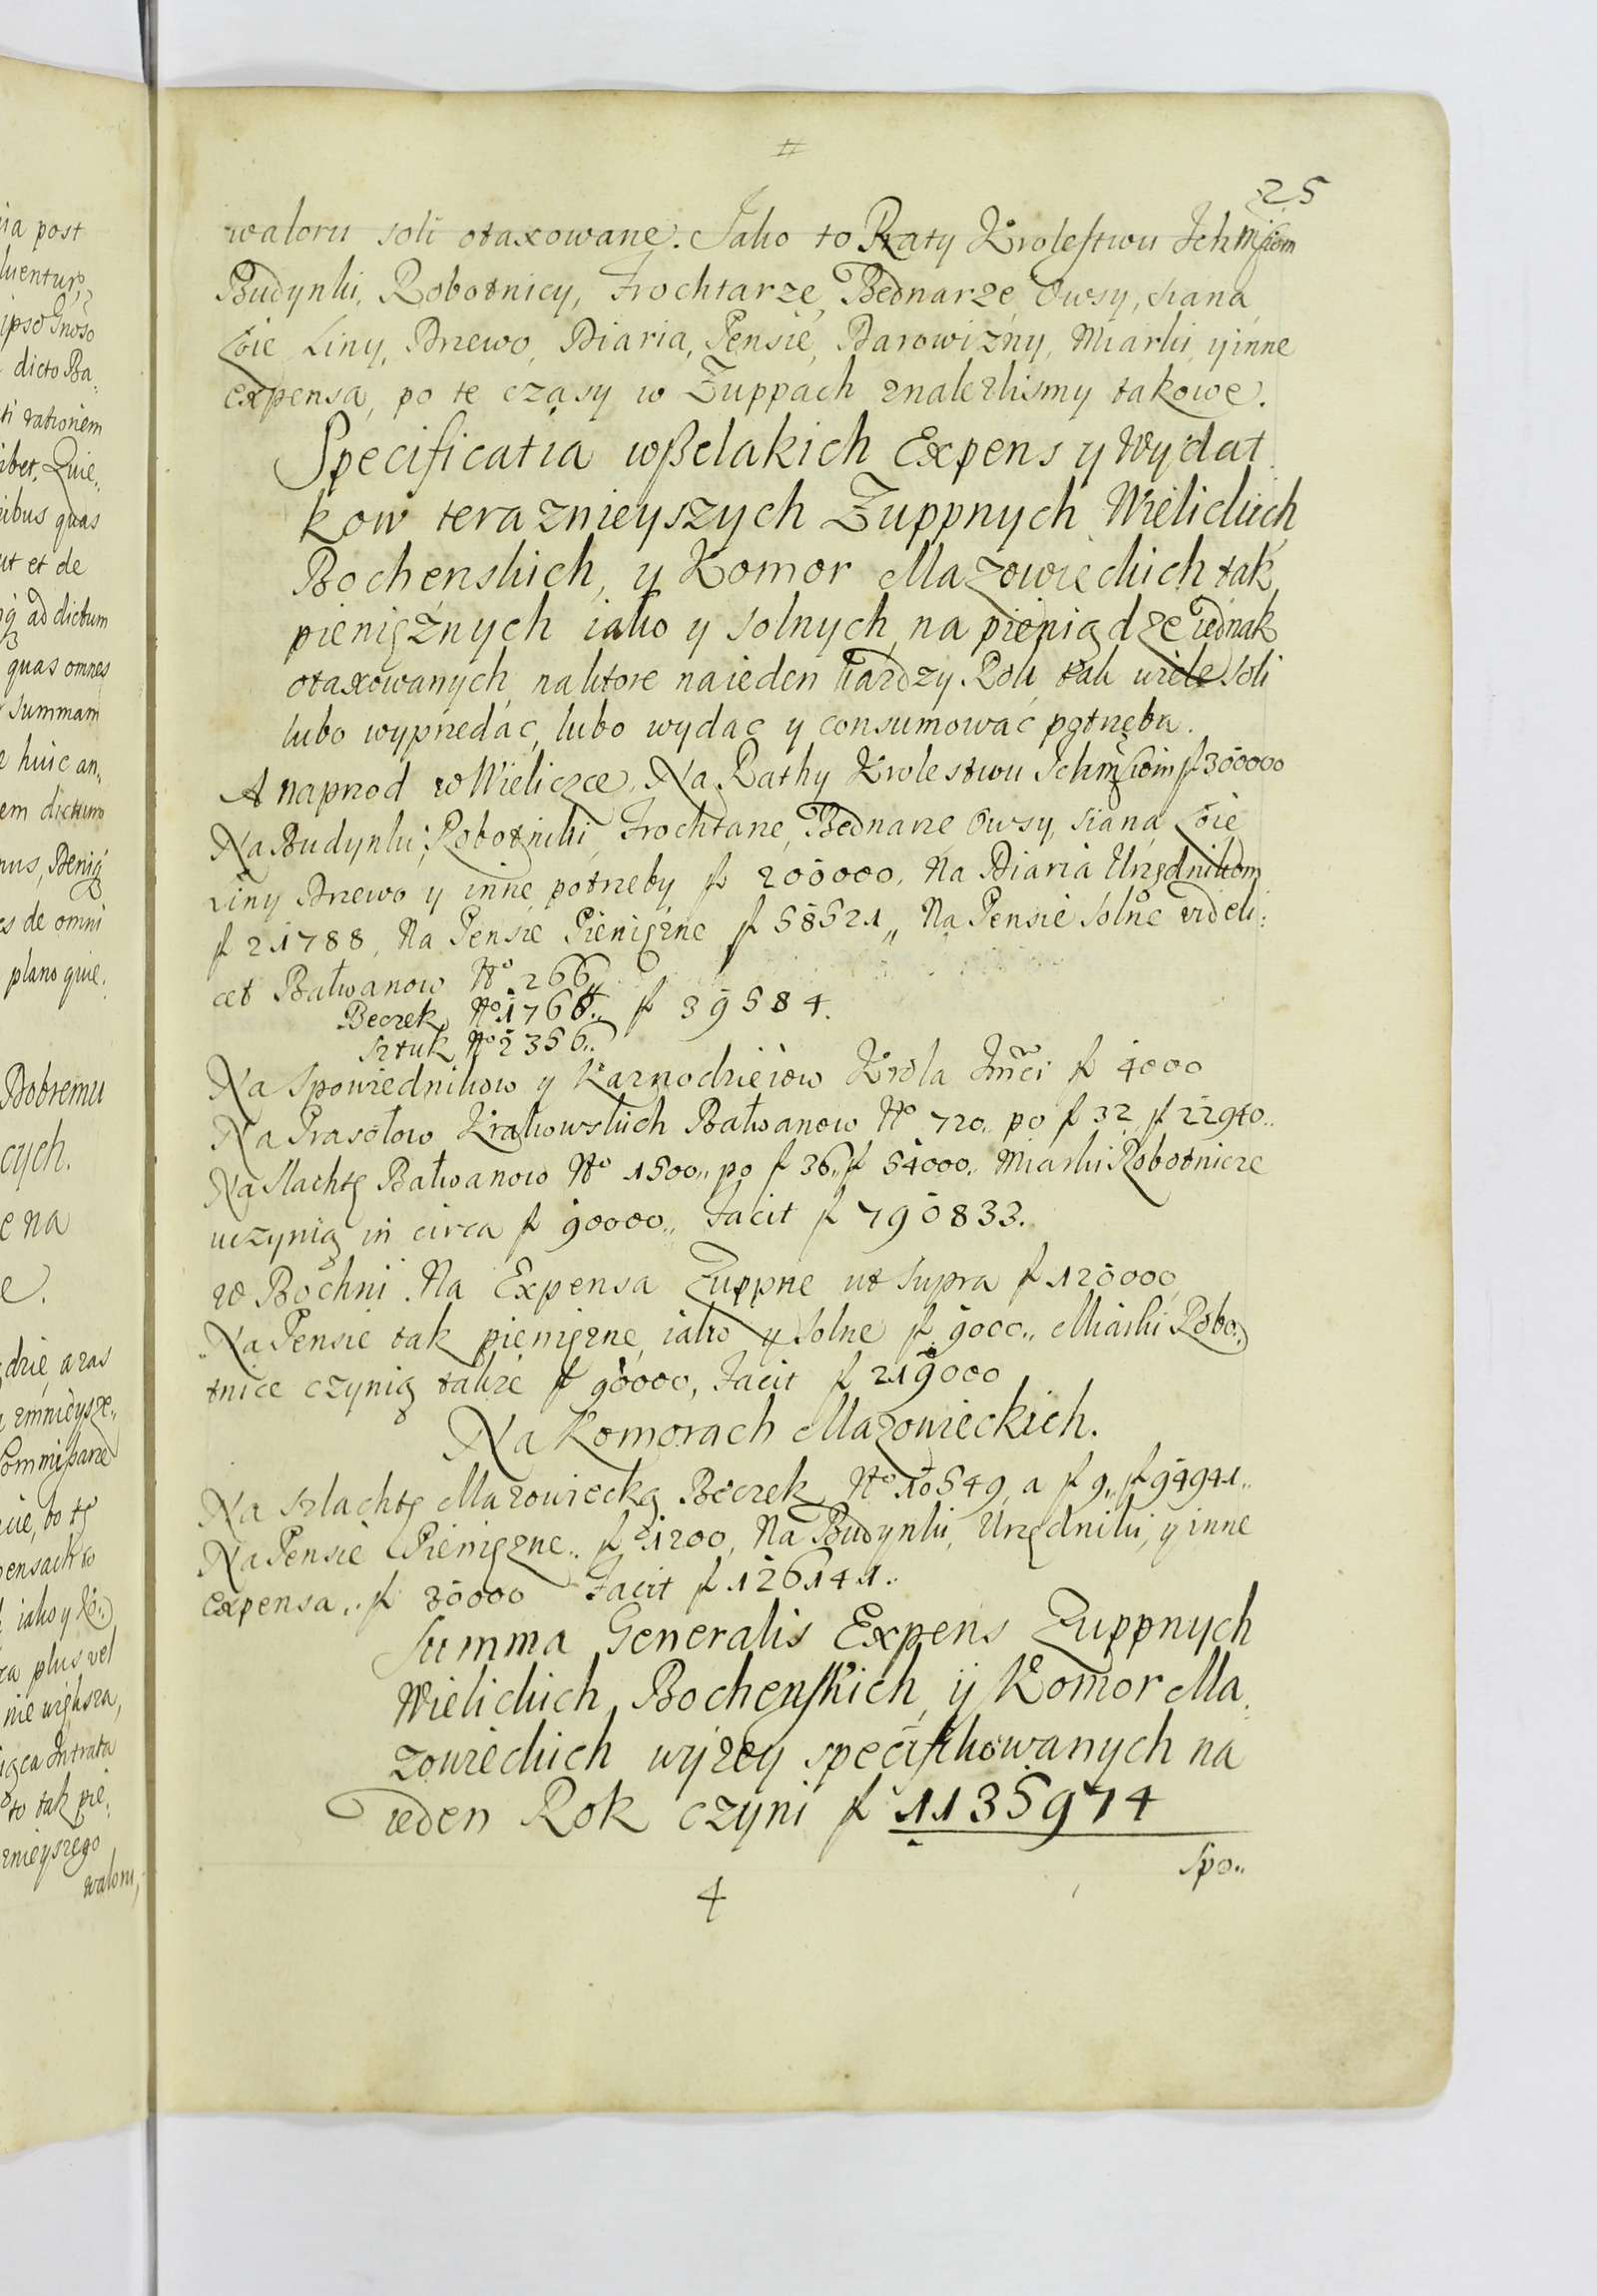 #
25
waloru soli otaxowane. Jako to Raty Krolestwu Ichmsciom
Budynki, Robotnicy, Trochtarze, Bednarze, Owsy, siana,
Łoie, Liny, Drzewo, Diaria, Pensie, Darowizny, Miarki, y inne
expensa, po te czasy w Zuppach znalezlismy takowe.
Specificatia wßelakich Expens y Wydat
kow teraznieyszych Zuppnych Wielickich,
Bochenskich, y Komor Mazowieckich tak
pieniężnych iako y solnych, na pieniądze iednak
otaxowanych, na ktore na ieden kazdzy Rok tak wiele soli
lubo wyprzedać, lubo wydac y consumować potrzeba.
A naprzod w Wieliczce, Na Rathy Krolestwu Ichmsciom f 300000
Na Budynki, Robotniki, Trochtarze, Bednarze, Owsy, siana, Łoie
Liny Drzewo y inne potrzeby f 200000, Na Diaria Urzędnikom
f 21788, Na Pensie Pieniężne f 58521,, Na Pensie solne videli:
cet Bałwanow No 266,,
Beczek No 1764,, f 39584.
sztuk No 2356,,
Na Spowiednikow y Kaznodzieiow Krola Jmci f 4000
Na Prasołow Krakowskich Bałwanow No 720,, po f 32, f 22940,,
Na Slachtę Bałwanow No 1500,, po f 36,, f 54000,, Miarki Robotnicze
uczynią in circa f 90000,, Facit f 790833.
w Bochni. Na Expensa Zuppne ut supra f 120000,
Na Pensie tak pieniężne, iako y solne f 9000,, Miarki Robo:
tnice czynią takze f 90000, Facit f 219000
Na Komorach Mazowieckich.
Na szlachtę Mazowiecką Beczek No 10549, a f 9,, f 94941,,
Na Pensie Pieniężne,, f 1200, Na Budynki, Urzędniki, y inne
expensa,, f 30000 Facit f 126141,,
Summa Generalis Expens Zuppnych
Wielickich, Bochenskich, y Komor Ma:
zowieckich wyzey specifikowanych na
ieden Rok czyni f 1135974
Spo,,
4
ia post
luentur,
dicto Ba:
ti rationem
ibus quas
ut et de
ad dictum
quas omnes
summam
huic an,
em dictum
s de omni
plano quie.
Dobremu
cych.
e na
e.
drie, a zas
zmnieysze,,
Commißarze
iako y
ra plus vel
nie większa,
Intrata
to tak pie:
znieyszego
waloru,